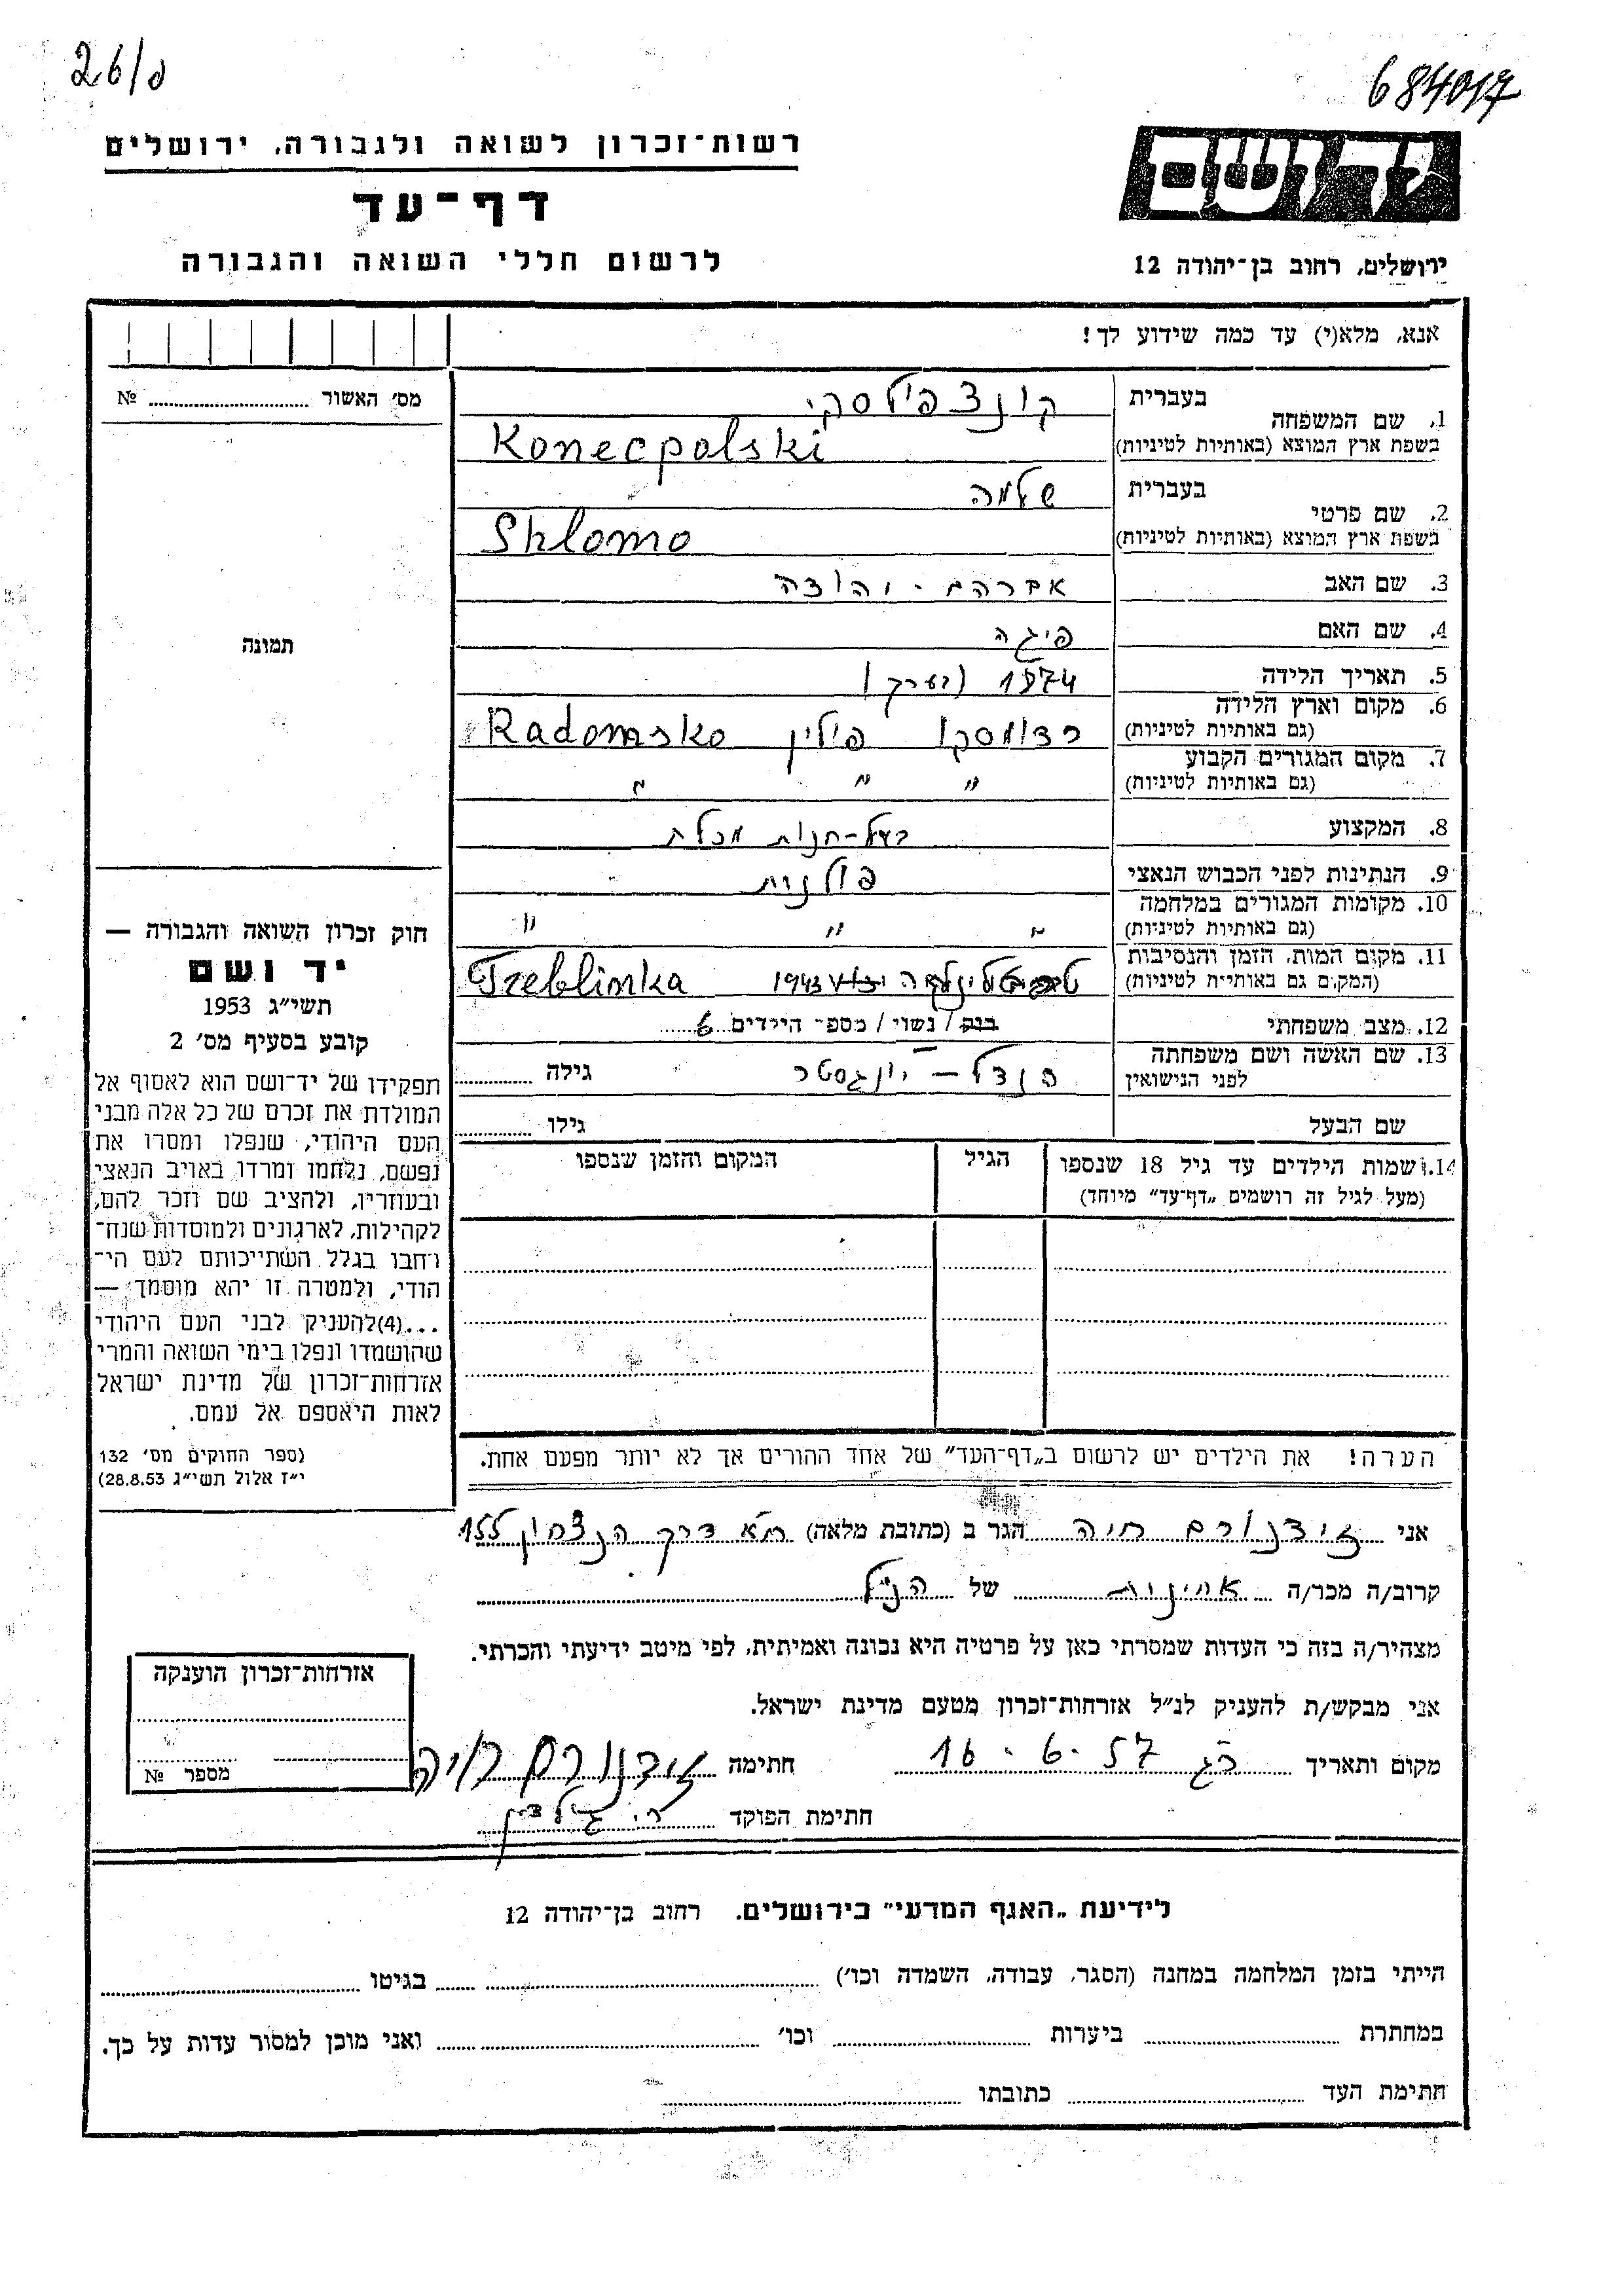 26/ס
684017
רשות־זכרון לשואה ולגבורה, ירושלים
דף־עד
לרשום חללי השואה והגבורה
יד ושם
ירושלים, רחוב בן־יהודה 12
אנא, מלא(י) עד כמה שידוע לך!
מס׳ האשור № 
1. שם המשפחה
בעברית קונצפולסקי
בשפת ארץ המוצא (באותיות לטיניות) Konecpolski
2. שם פרטי
בעברית שלמה
בשפת ארץ המוצא (באותיות לטיניות) Shlomo
3. שם האב אברהם - יהודה
4. שם האם פיגה
5. תאריך הלידה 1874 (בערך)
6. מקום וארץ הלידה
(גם באותיות לטיניות) רדומסקו פולין Radomsko
7. מקום המגורים הקבוע
(גם באותיות לטיניות) " " "
8. המקצוע בעל-חנות מכלת
9. הנתינות לפני הכבוש הנאצי פולנית
10. מקומות המגורים במלחמה
(גם באותיות לטיניות) " " "
11. מקום המות, הזמן והנסיבות
(המקום גם באותיות לטיניות) טרבלינקה 1943 Treblinka
12. מצב משפחתי רווק / נשוי / מספר הילדים 6
13. שם האשה ושם משפחתה
לפני הנישואין הנדל - יונגסטר גילה
שם הבעל גילו
14. שמות הילדים עד גיל 18 שנספו
(מעל לגיל זה רושמים „דף־עד” מיוחד)
הגיל
המקום והזמן שנספו
תמונה
חוק זכרון השואה והגבורה —
יד ושם
תשי״ג 1953
קובע בסעיף מס׳ 2
תפקידו של יד־ושם הוא לאסוף אל
המולדת את זכרם של כל אלה מבני
העם היהודי, שנפלו ומסרו את
נפשם, נלחמו ומרדו באויב הנאצי
ובעוזריו, ולהציב שם וזכר להם,
לקהילות, לארגונים ולמוסדות שנח־
רחבו בגלל השתייכותם לעם הי־
הודי, ולמטרה זו יהא מוסמך —
...(4)להעניק לבני העם היהודי
שהושמדו ונפלו בימי השואה והמרי
אזרחות־זכרון של מדינת ישראל
לאות היאספם אל עמם.
(ספר החוקים מס׳ 132
י״ז אלול תשי״ג 28.8.53)
הערה! את הילדים יש לרשום ב„דף־העד” של אחד ההורים אך לא יותר מפעם אחת.
אני זידנורם חיה הגר ב (כתובת מלאה) ת״א דרך הנצחון 155
קרוב/ה מכר/ה אחינית של הנ״ל
מצהיר/ה בזה כי העדות שמסרתי כאן על פרטיה היא נכונה ואמיתית, לפי מיטב ידיעתי והכרתי.
אני מבקש/ת להעניק לנ״ל אזרחות־זכרון מטעם מדינת ישראל.
מקום ותאריך רג 16.6.57 חתימה זידנורם חיה
חתימת הפוקד
אזרחות־זכרון הוענקה
מספר №
לידיעת „האגף המדעי” בירושלים. רחוב בן־יהודה 12
הייתי בזמן המלחמה במחנה (הסגר, עבודה, השמדה וכו׳) בגיטו
במחתרת ביערות וכו׳ ואני מוכן למסור עדות על כך.
חתימת העד כתובתו